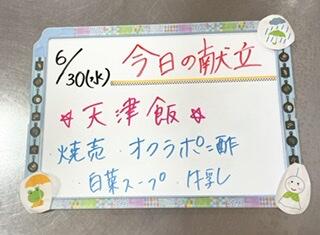 6/30(水) 今日の献立
☆天津飯☆
・焼売 ・オクラポン酢
・白菜スープ ・牛乳